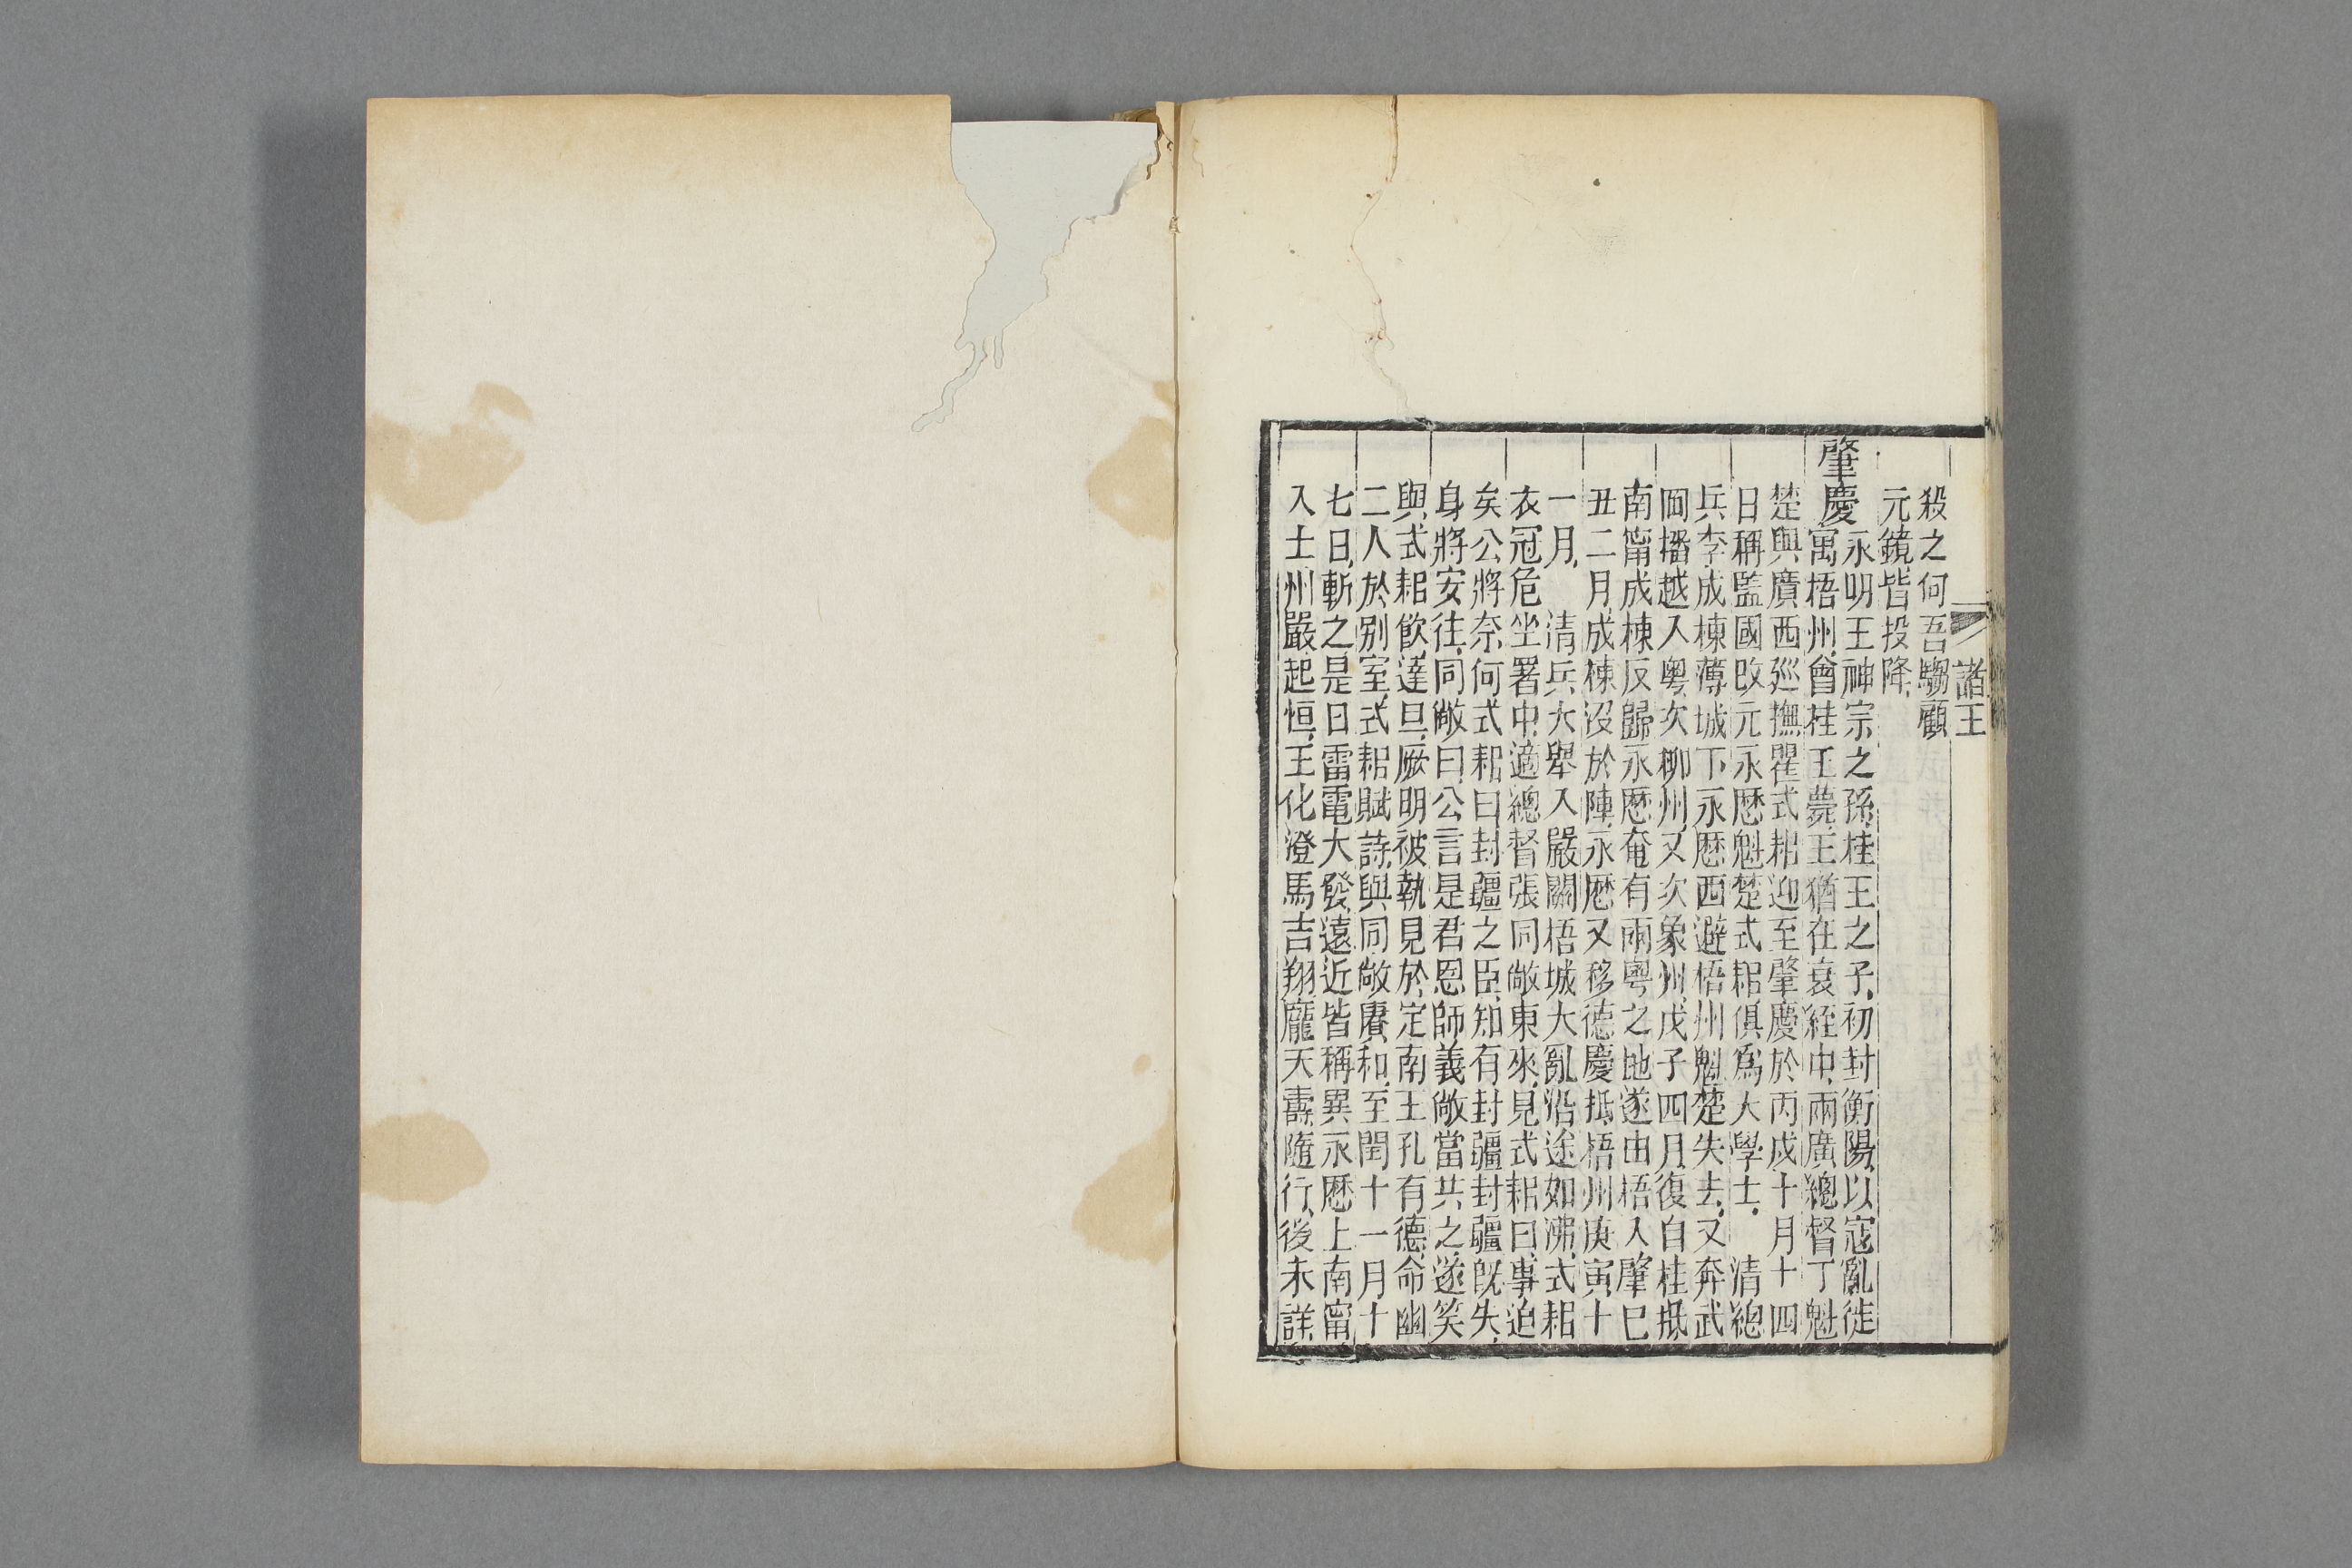 諸王
殺之何吾騶顧
元鏡皆投降
肇慶
永明王神宗之孫桂王之子初封衡陽以寇亂徒
寓梧州會桂王薨王猶在衰絰中兩廣總督丁魁
楚與廣西廵撫瞿式耜迎至肇慶於丙戍十月十四
日稱監國改元永厯魁楚式耜俱爲大學士 清總
兵李成棟薄城下永厯西避梧州魁楚失去又奔武
岡播越入粤次柳州又次象州戊子四月復自桂抵
南甯成棟反歸永厯奄有兩粤之地遂由梧入肇巳
丑二月成棟沒於陣永厯又移德慶抵梧州庚寅十
一月 清兵大舉入嚴關梧城大亂沿途如沸式耜
衣冠危坐署中適總督張同敞東來見式耜曰事迫
矣公將奈何式耜曰封疆之臣知有封疆封疆旣失
身將安往同敞曰公言是君恩師義敞當共之遂笑
與式耜飮達旦厥明被執見於定南王孔有德命幽
二人於别室式耜賦詩與同敞賡和至閏十一月十
七日斬之是日雷電大發遠近皆稱異永厯上南甯
入土州嚴起恒王化澄馬吉翔龐天壽隨行後未詳